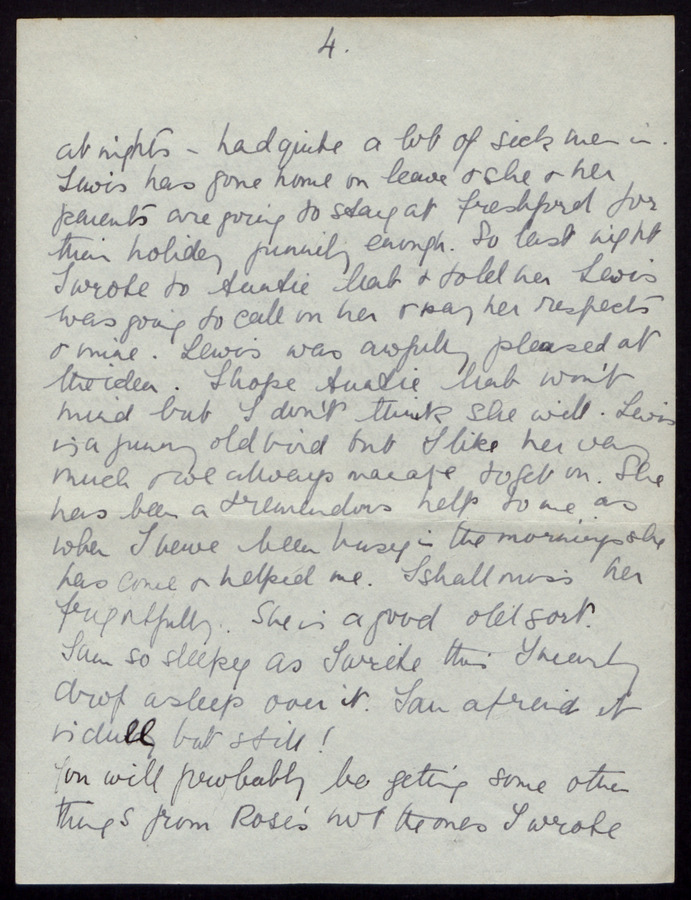 4.
at nights – had quite a lot of sick men in.
Lewis has gone home on leave & she & her
parents are going to stay at Freshford for
their holiday funnily enough. So last night
I wrote to Auntie Mab & told her Lewis
was going to call on her & pay her respects
& mine. Lewis was awfully pleased at
the idea. I hope Auntie Mab won't
mind but I don't think she will. Lewis
is a funny old bird but I like her very
much & we always manage to get on. She
has been a tremendous help to me as
when I have been busy in the mornings she
has come & helped me. I shall miss her
frightfully. She is a good old sort.
I am so sleepy as I write this I nearly
drop asleep over it. I am afraid it
is dully but still!
You will probably be getting some other
things from Roses not the ones I wrote